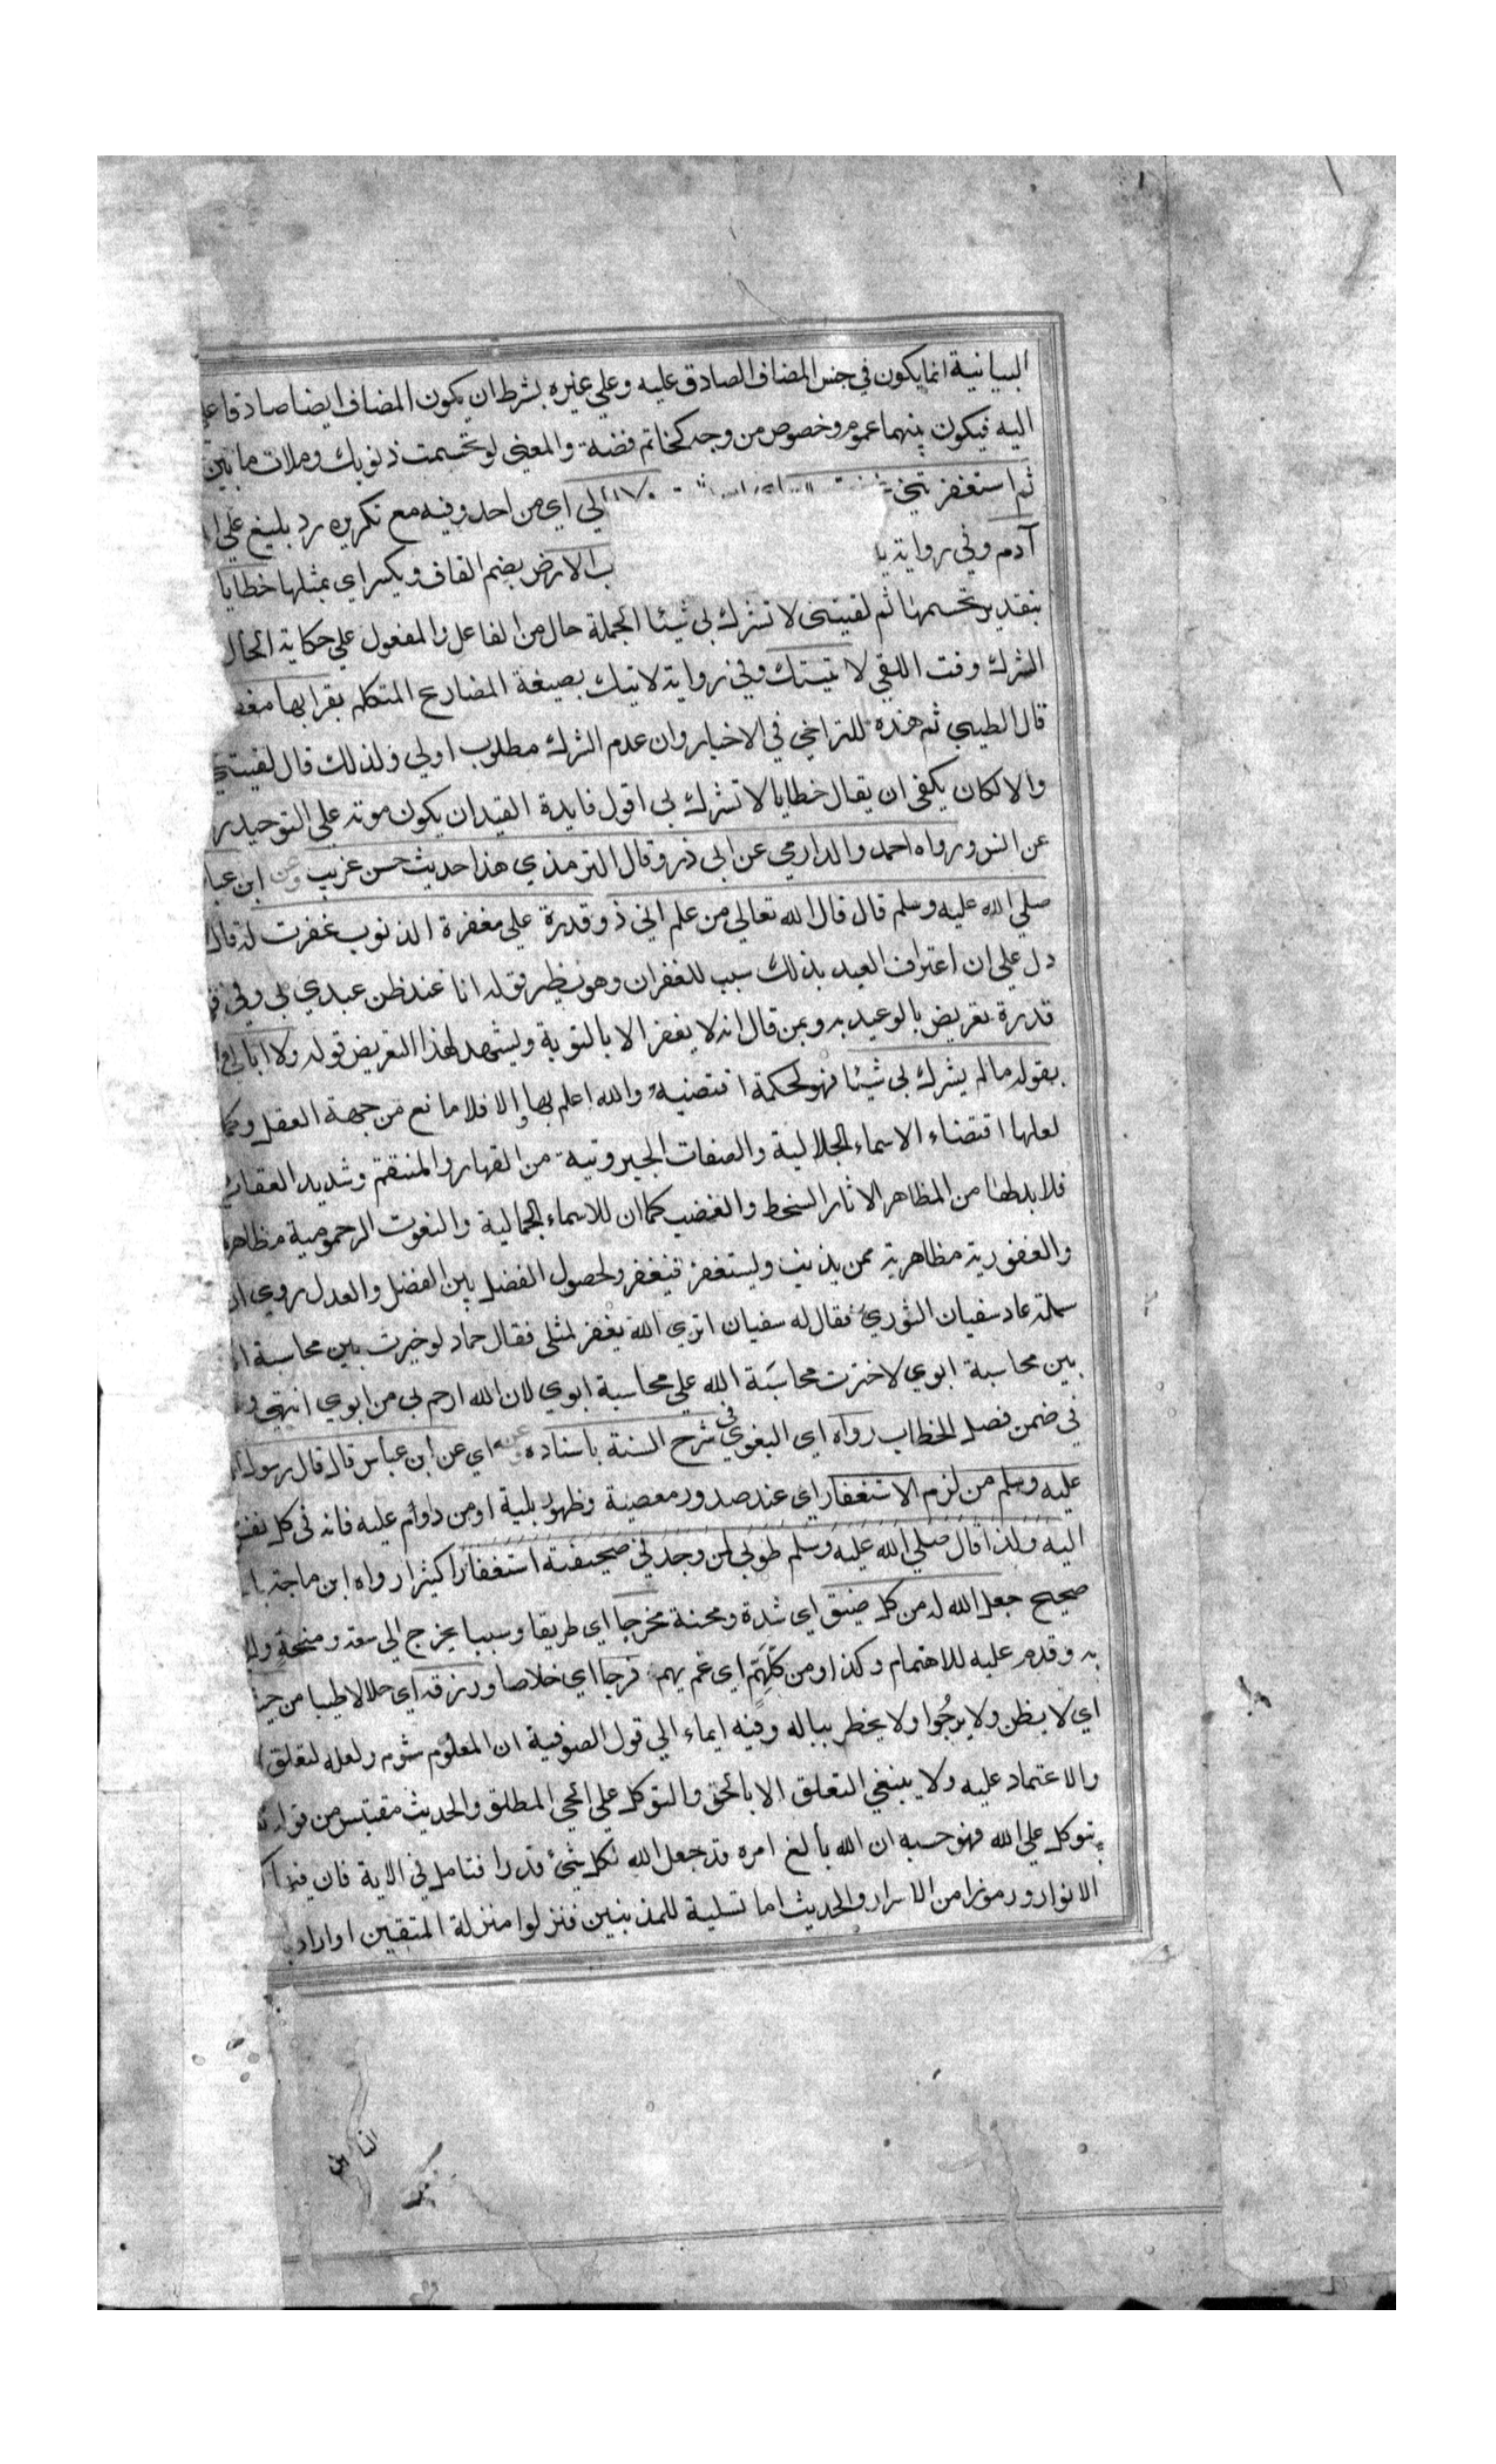 البيانية انما يكون في جنس المضاف الصادق عليه وعلي غيره بشرط ان يكون المضاف ايضا صادقا
اليه فيكون بينهما عموم وخصوص من وجه كخاتم فضة والمعني لو تجسمت ذنوبك وملات ما بين
ثم استغفرتني الي اي من احد وفيه مع تكريره رد بليغ علي
آدم وفي رواية يا
ب الارض بضم القاف ويكسر اي بمثلها خطايا
بتقدير تجسمها ثم لقيتني لا تشرك بي شيئا الجملة حال من الفاعل والمفعول علي حكاية الحال
الشرك وقت اللقي لا تيتك وفي رواية لاتيك بصيغة المضارع المتكلم بقرابها
قال الطيبي ثم هذه للتراخي في الاخبار وان عدم الشرك مطلوب اولي ولذلك قال لقيتني
والا لكان يكفي ان يقال خطايا لا تشرك بي اقول فايدة القيد ان يكون موته علي التوحيد
عن انس ورواه احمد والدارمي عن ابي ذر وقال الترمذي هذا حديث حسن غريب وعن ابن
صلي الله عليه وسلم قال قال الله تعالي من علم اني ذو قدرة علي مغفرة الذنوب غفرت له
دل علي ان اعتراف العبد بذلك سبب للغفران وهو نظير قوله انا عند ظن عبدي بي وفي
قدرة تعريض بالوعيدية وبمن قال انه لا يغفر الا بالتوبة ويشهد لهذا التعريض قوله ولا ابالي
بقوله ما لم يشرك بي شيئا فهو لحكمة اقتضيه والله اعلم بها والا فلا مانع من جهة العقل
لعلها اقتضاء الاسماء الجلالية والصفات الجبروتية من القهار والمنتقم وشديد العقاب
فلا بد لها من المظاهر الاثار السخط والغضب كما ان للاسماء الجمالية والنعوت الرحموتية مظاهر
والغفورية مظاهرية ممن يذنب ويستغفر فيغفر ولحصول الفضل بين الفضل والعدل روي
سلمة عاد سفيان الثوري فقال له سفيان اتري الله يغفر لمثلي فقال حماد لو خيرت بين محاسبة
بين محاسبة ابوي لاخترت محاسبة الله علي محاسبة ابوي لان الله ارحم بي من ابوي انتهي
في ضمن فصل الخطاب رواه اي البغوي في شرح السنة باسناده وعنه اي عن ابن عباس قال قال رسول
عليه وسلم من لزم الاستغفار اي عند صدور معصية وظهور بلية او من داوم عليه فانه في كل نفس
اليه ولذا قال صلي الله عليه وسلم طوبي لمن وجد في صحيفته استغفارا كثيرا رواه ابن ماجة
صحيح جعل الله له من كل ضيق اي شدة ومحنة مخرجا اي طريقا وسببا يخرج الي سعة ومنحة
به وقدم عليه للاهتمام وكذا ومن كل هم اي غم يهم فرجا اي خلاصا ورزقه اي حلالا طيبا من
اي لا يظن ولا يرجوا ولا يخطر بباله وفيه ايماء الي قول الصوفية ان المعلوم شوم ولعله لتعلق
والاعتماد عليه ولا ينبغي التعلق الا بالحق والتوكل علي الحي المطلق والحديث مقتبس من قوله
يتوكل علي الله فهو حسبه ان الله بالغ امره قد جعل الله لكل شئ قدرا فتامل في الاية فان فيها
الانوار ورموزا من الاسرار والحديث اما تسلية للمذنبين فنزلوا منزلة المتقين او اراد